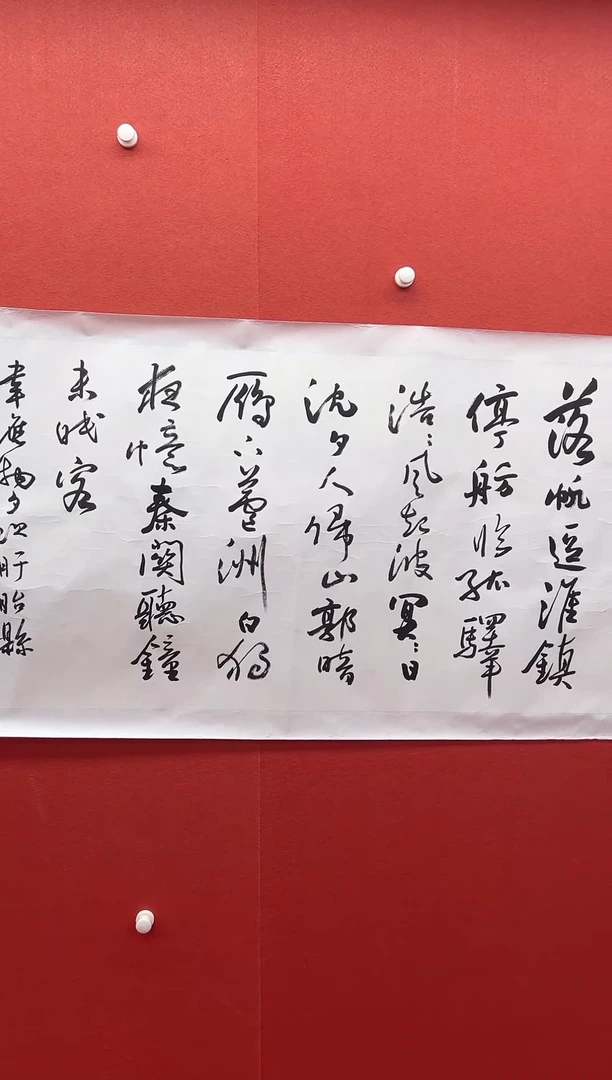 落帆逗淮鎮
停舫臨孤驛
浩〻風起波冥〻日
沈夕人歸山郭暗
鴈下蘆洲白獨
夜憶秦關聽鐘
未眠客
韋應物夕次盱眙縣